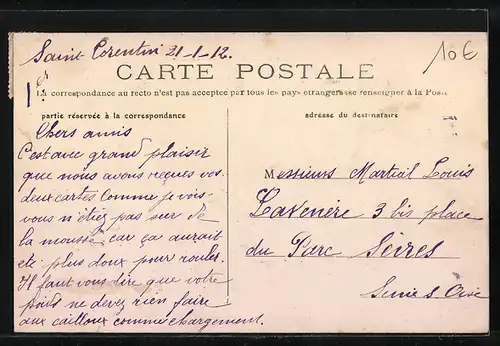 Saint Corentin 21-1-12.
10€
CARTE POSTALE
La correspondance au recto n'est pas acceptée par tous les pays étrangers (se renseigner à la Poste
partie réservée à la correspondance
adresse du destinataire
Chers amis
C'est avec grand plaisir
que nous avons reçues vos
deux cartes Comme je vois
vous n'étiez pas sur de
la mousse car ça aurait
été plus doux pour rouler.
Il faut vous dire que votre
poids ne devez rien faire
aux cailloux comme chargement.
Messieurs Martial Louis
Lavenère 3 bis place
du Parc Sèvres
Seine & Oise